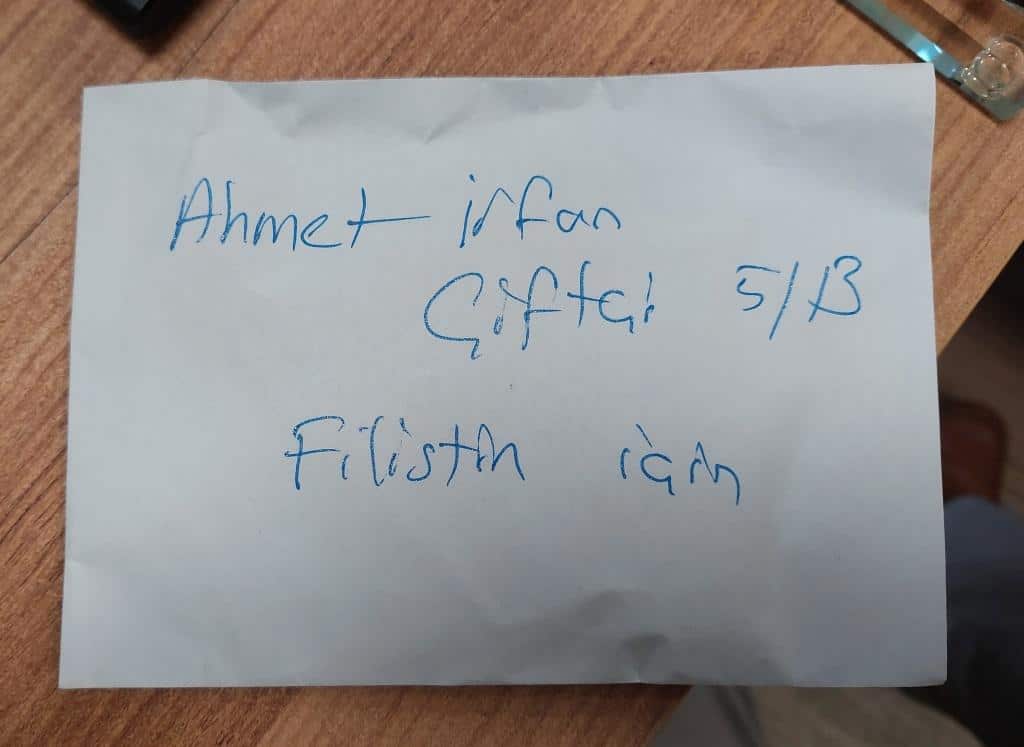 Ahmet irfan
Çiftçi 5/B
Filistin için